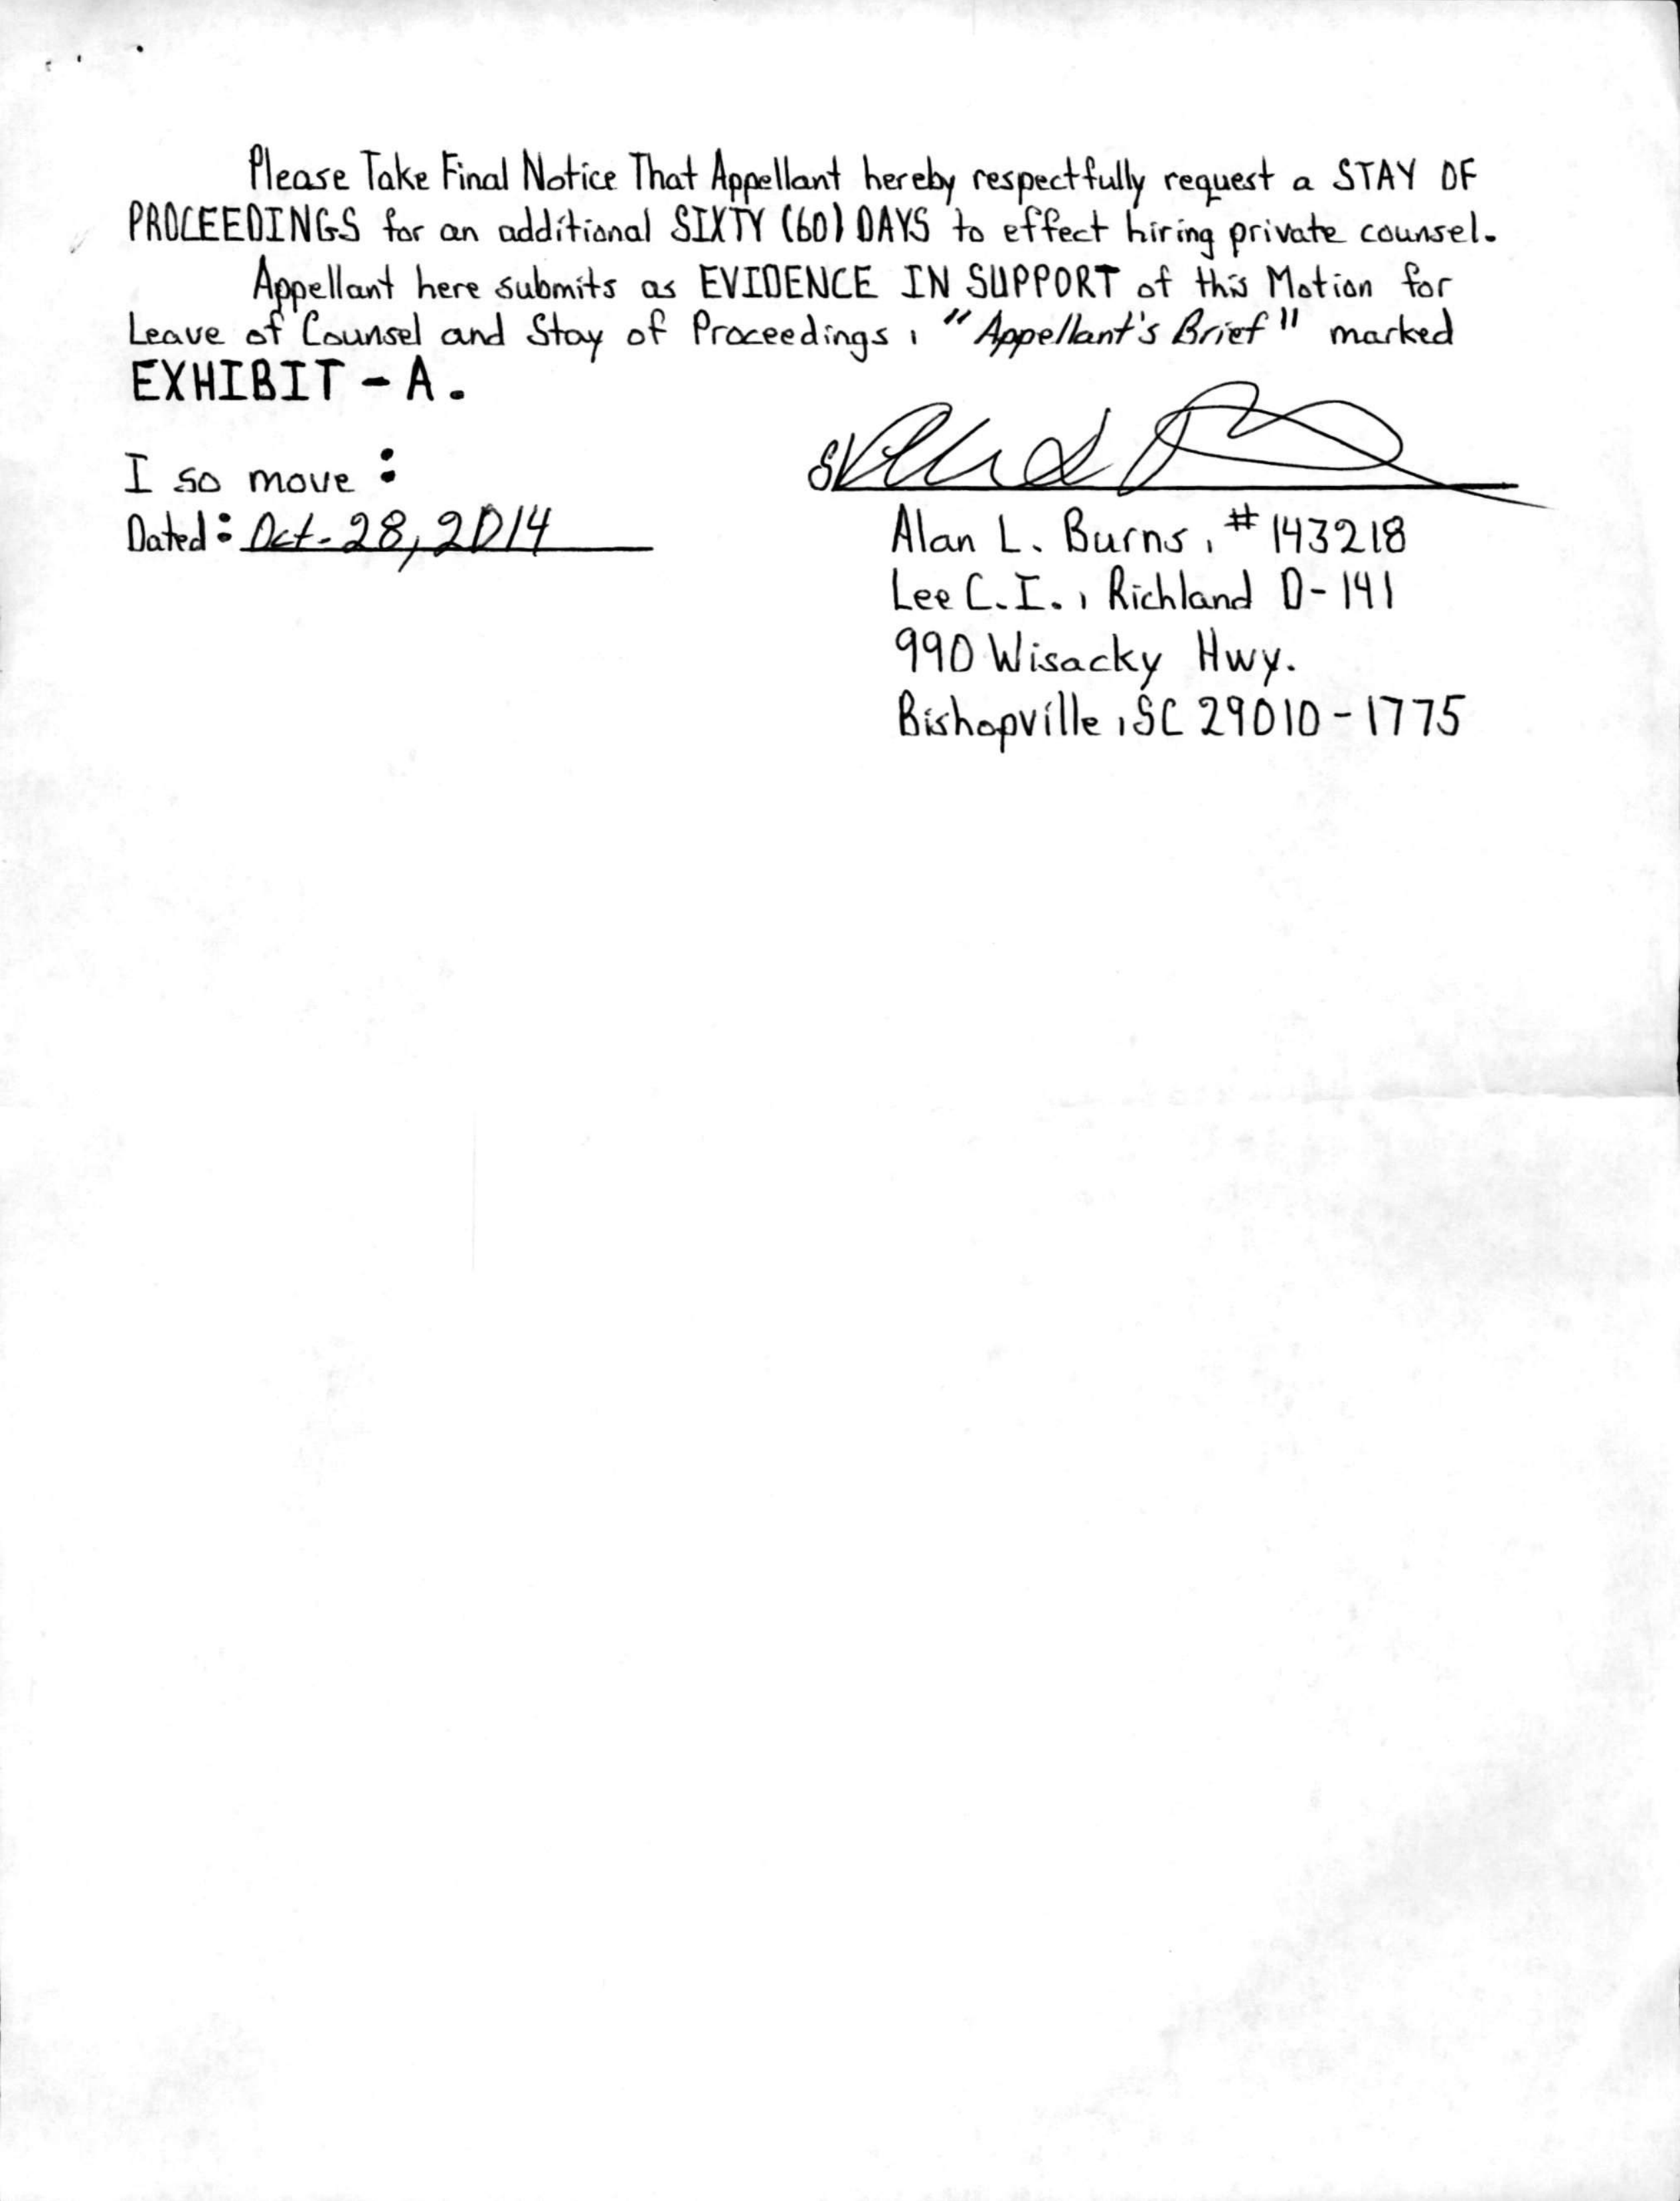 Please Take Final Notice That Appellant hereby respectfully request a STAY OF
PROCEEDINGS for an additional SIXTY (60) DAYS to effect hiring private counsel.
Appellant here submits as EVIDENCE IN SUPPORT of this Motion for
Leave of Counsel and Stay of Proceedings, "Appellant's Brief" marked
EXHIBIT - A.
I so move:
Dated: Oct. 28, 2014
S/
Alan L. Burns, #143218
Lee C.I., Richland D-141
990 Wisacky Hwy.
Bishopville, SC 29010-1775